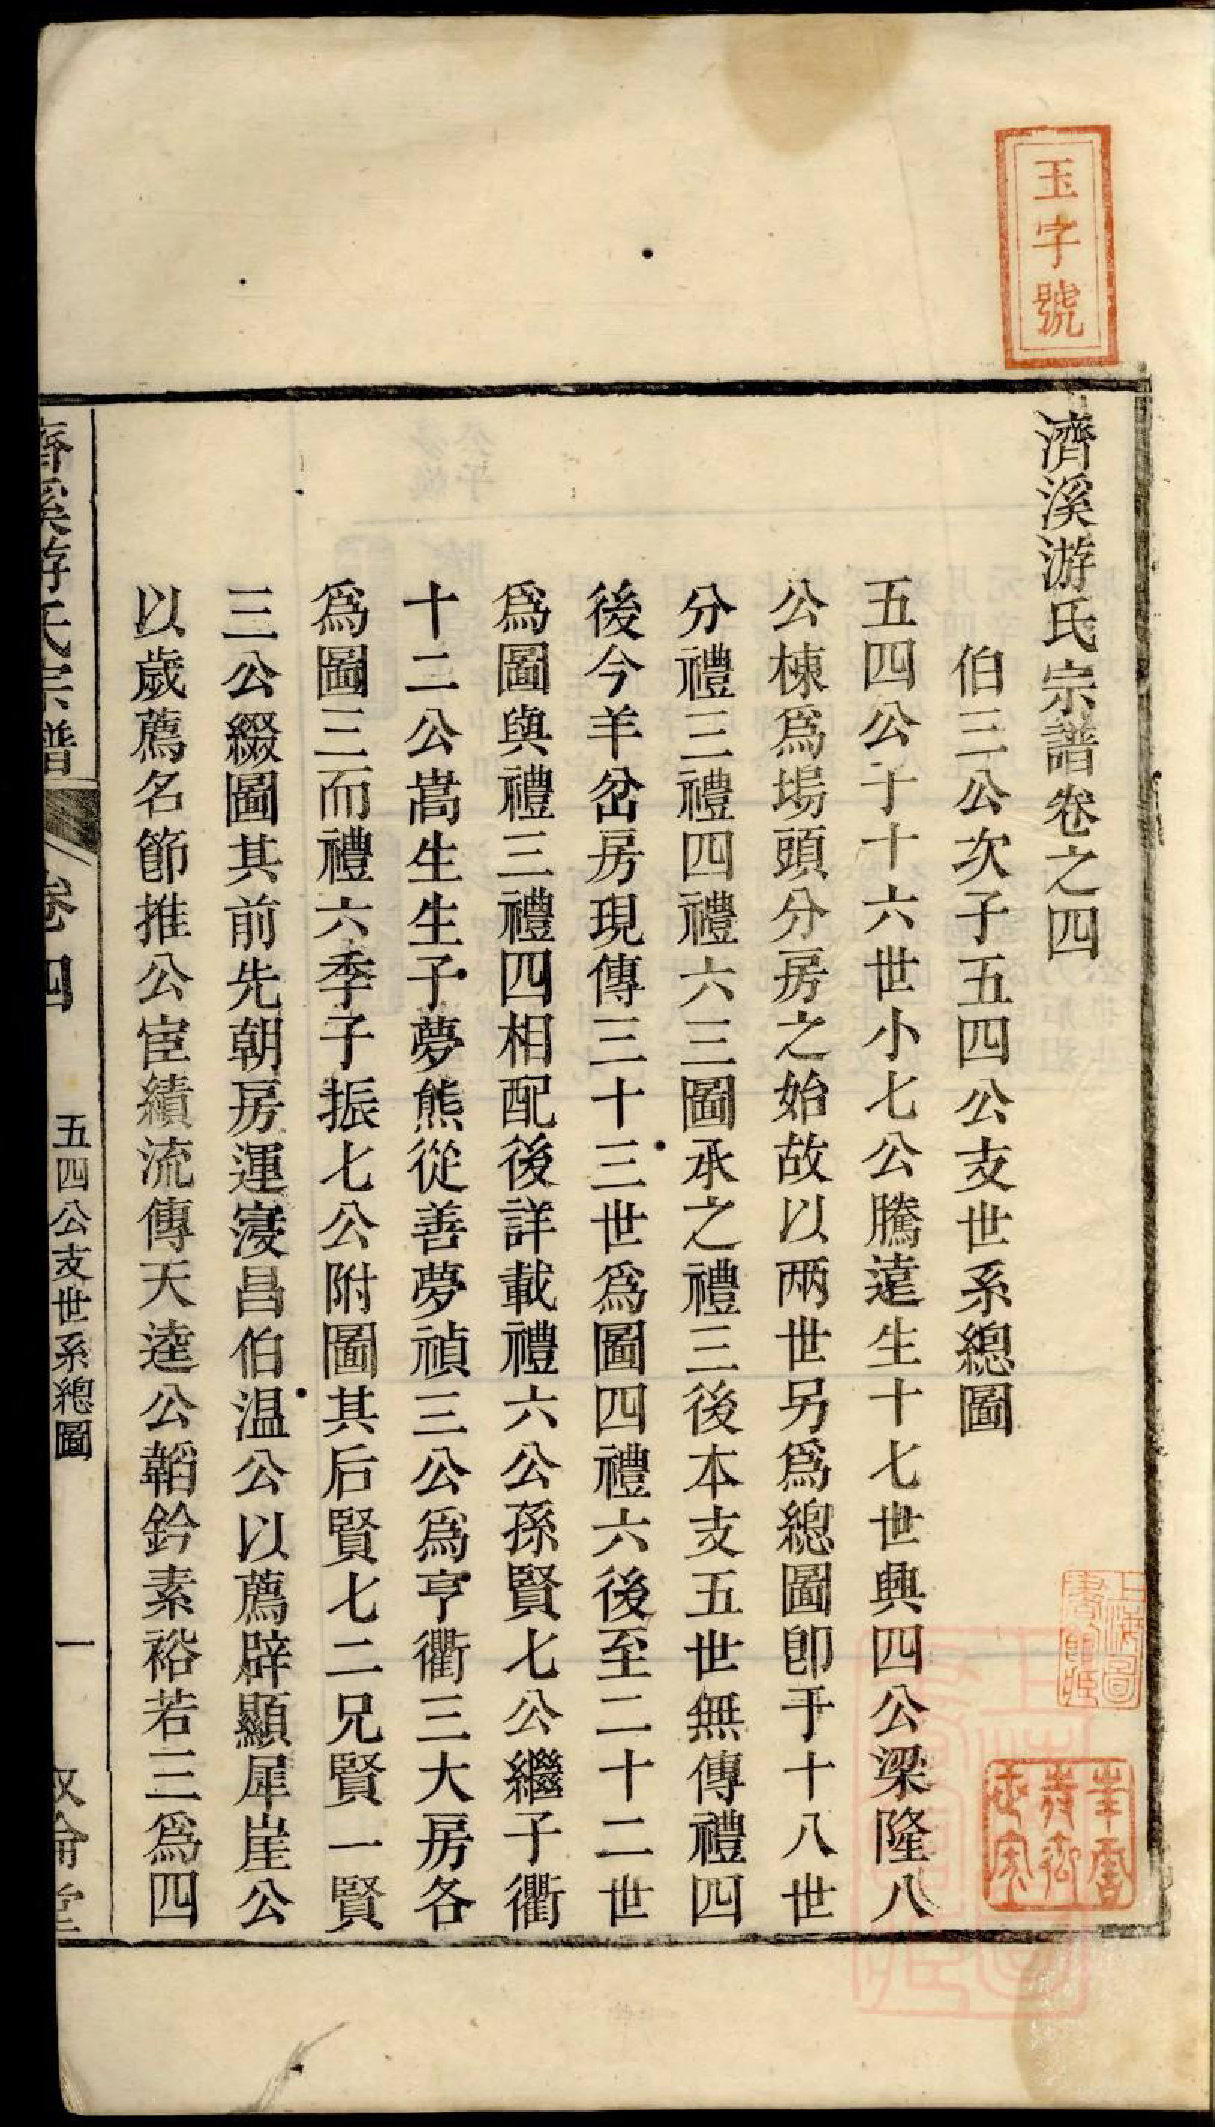 玉字號
濟溪游氏宗譜卷之四
伯三公次子五四公支世系總圖
五四公于十六世小七公騰遠生十七世興四公梁隆八
公棟爲塲頭分房之始故以兩世另爲總圖卽于十八世
分禮三禮四禮六三圖承之禮三後本支五世無傳禮四
後今羊岔房現傳三十三世爲圖四禮六後至二十二世
爲圖與禮三禮四相配後詳載禮六公孫賢七公繼子衢
十二公嵩生生子夢熊從善夢禎三公爲亨衢三大房各
爲圖三而禮六季子振七公附圖其后賢七二兄賢一賢
三公綴圖其前先朝房運寖昌伯温公以薦辟顯犀崖公
以歲薦名節推公宦績流傳天逵公韜鈐素裕若三爲四
濟溪游氏宗譜
卷四
五四公支世系總圖
一
敘倫堂
上海圖書館藏